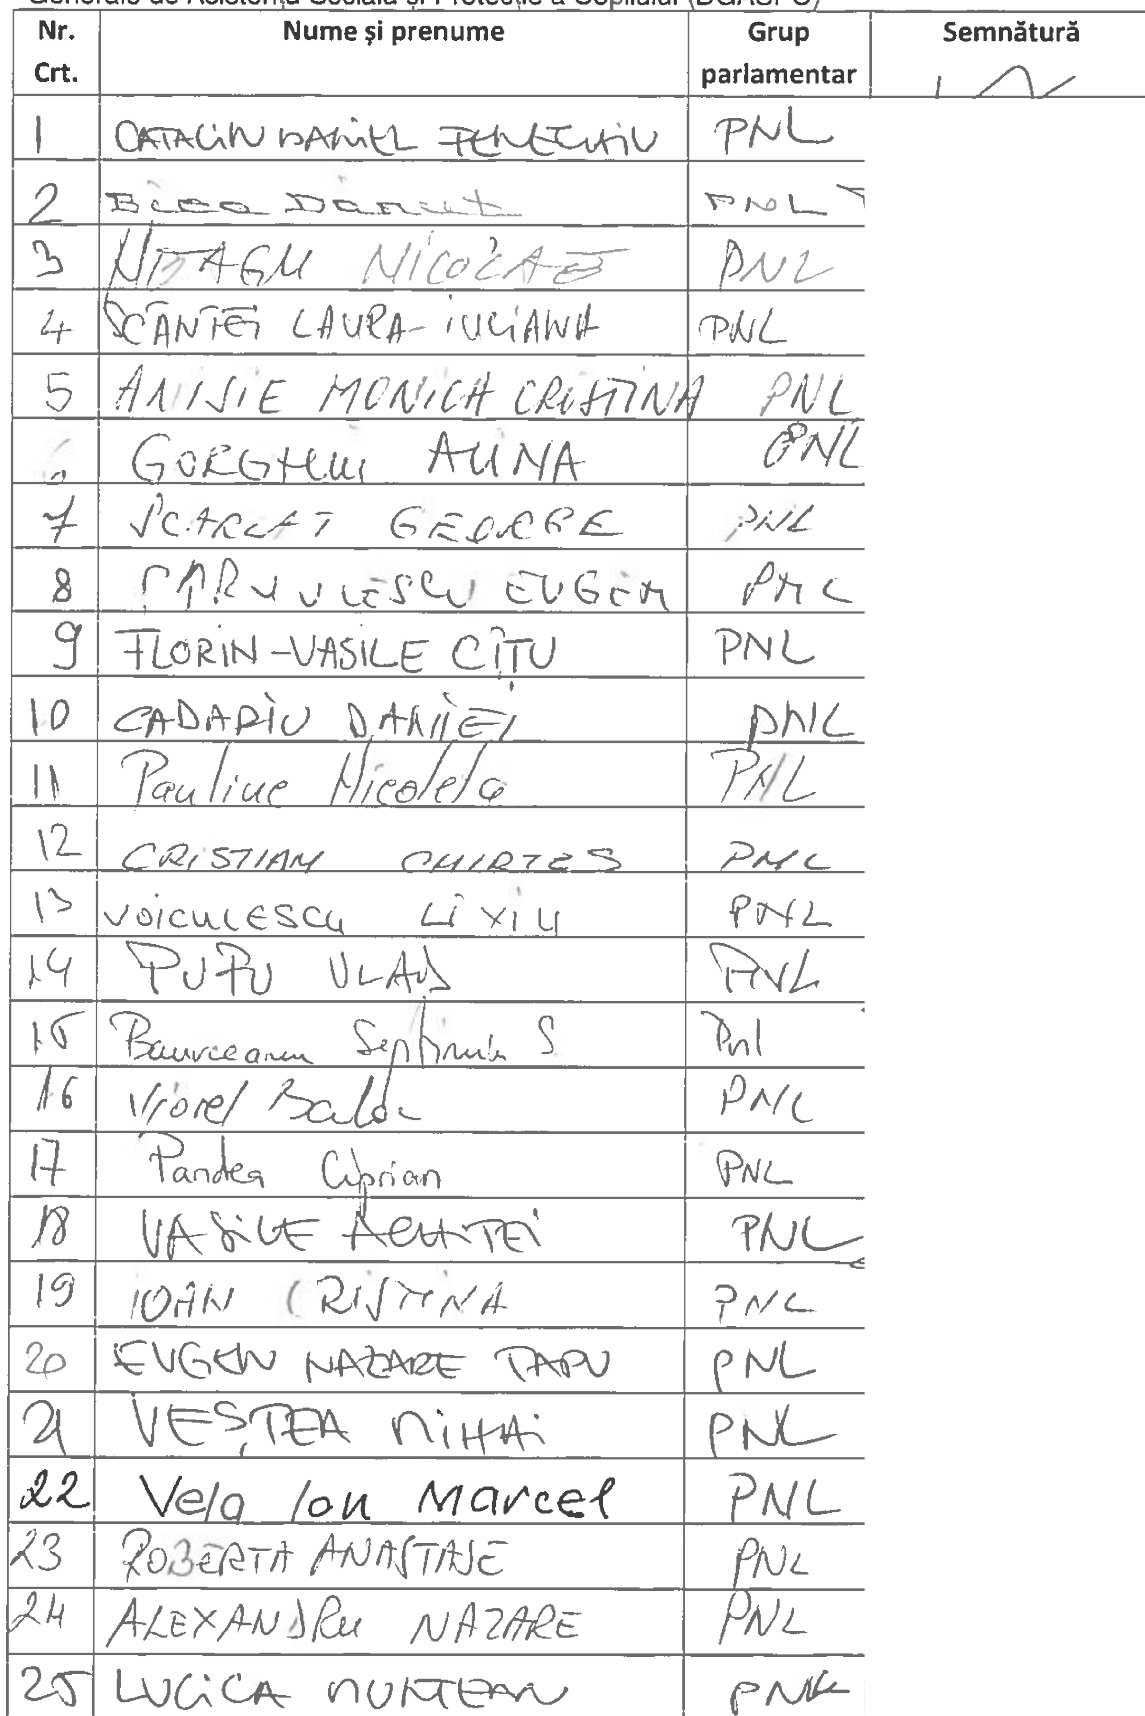 Generale de Asistență Socială și Protecție a Copilului (DGASPC)
Nr. Crt. Nume și prenume Grup parlamentar Semnătură
1 CATALIN DANIEL FENECHIU PNL
2 Bica Dănuț PNL
3 NEAGU NICOLAE PNL
4 SCÂNTEI LAURA-IULIANA PNL
5 ANISIE MONICA CRISTINA PNL
6 GORGHIU ALINA PNL
7 SCARLAT GEORGE PNL
8 PÂRVULESCU EUGEN PNL
9 FLORIN-VASILE CÎȚU PNL
10 CADARIU DANIEL PNL
11 Pauliuc Nicoleta PNL
12 CRISTIAN CHIRTEȘ PNL
13 VOICULESCU LIVIU PNL
14 PUFU VLAD PNL
15 S. Pnl
16 Viorel PNL
17 Pandea Ciprian PNL
18 VASILE ACHIȚEI PNL
19 IOAN CRISTINA PNL
20 EUGEN NAZARE PAPU PNL
21 VEȘTEA MIHAI PNL
22 Vela Ion Marcel PNL
23 ROBERTA ANASTASE PNL
24 ALEXANDRU NAZARE PNL
25 LUCICA MUNTEAN PNL